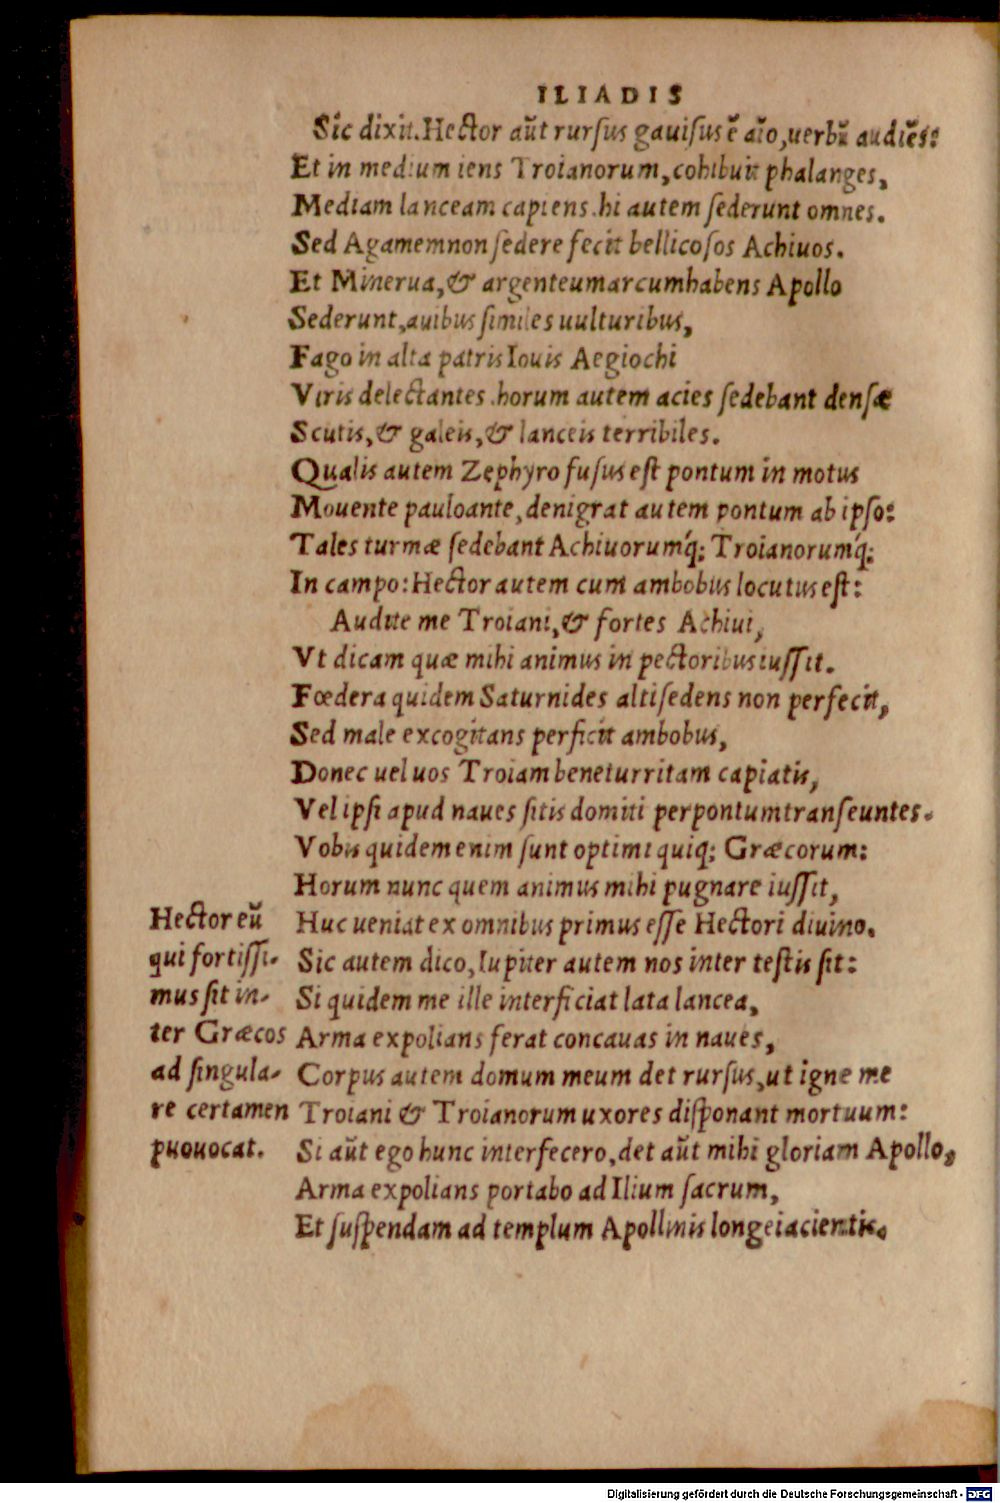 ILIADIS
Sic dixit. Hector aūt rursus gauisus ē aīo, uerbū audiēs:
Et in medium iens Troianorum, cohibuit phalanges,
Mediam lanceam capiens. hi autem sederunt omnes.
Sed Agamemnon sedere fecit bellicosos Achiuos.
Et Minerua, & argenteum arcum habens Apollo
Sederunt, auibus similes uulturibus,
Fago in alta patris Iouis Aegiochi
Viris delectantes. horum autem acies sedebant densæ
Scutis, & galeis, & lanceis terribiles.
Qualis autem Zephyro fusus est pontum in motus
Mouente pauloante, denigrat autem pontum ab ipso:
Tales turmæ sedebant Achiuorumq́; Troianorumq́;
In campo: Hector autem cum ambobus locutus est:
Audite me Troiani, & fortes Achiui,
Vt dicam quæ mihi animus in pectoribus iussit.
Fœdera quidem Saturnides altisedens non perfecit,
Sed male excogitans perficit ambobus,
Donec uel uos Troiam beneturritam capiatis,
Vel ipsi apud naues sitis domiti per pontum transeuntes.
Vobis quidem enim sunt optimi quiq; Græcorum:
Horum nunc quem animus mihi pugnare iussit,
Huc ueniat ex omnibus primus esse Hectori diuino.
Sic autem dico, Iupiter autem nos inter testis sit:
Si quidem me ille interficiat lata lancea,
Arma expolians ferat concauas in naues,
Corpus autem domum meum det rursus, ut igne me
Troiani & Troianorum uxores disponant mortuum:
Si aūt ego hunc interfecero, det aūt mihi gloriam Apollo,
Arma expolians portabo ad Ilium sacrum,
Et suspendam ad templum Apollinis longe iacientis.
Hector eū
qui fortissi-
mus sit in-
ter Græcos
ad singula-
re certamen
puouocat.
Digitalisierung gefördert durch die Deutsche Forschungsgemeinschaft - DFG